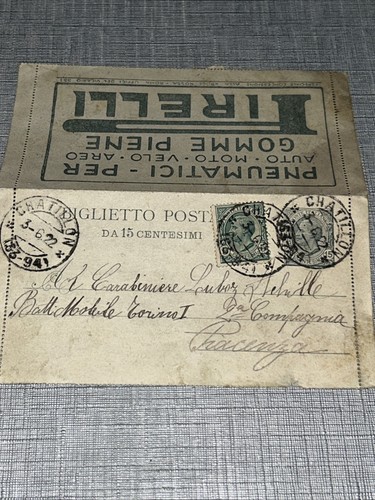 PIRELLI
GOMME PIENE
AUTO · MOTO · VELO · AREO
PNEUMATICI - PER
BIGLIETTO POSTA
DA 15 CENTESIMI
CHATILLON
3-6.22
(35-941)
CHATILLON
Al Carabiniere
Batt Mobile Torino I
2a Compagnia
Piacenza